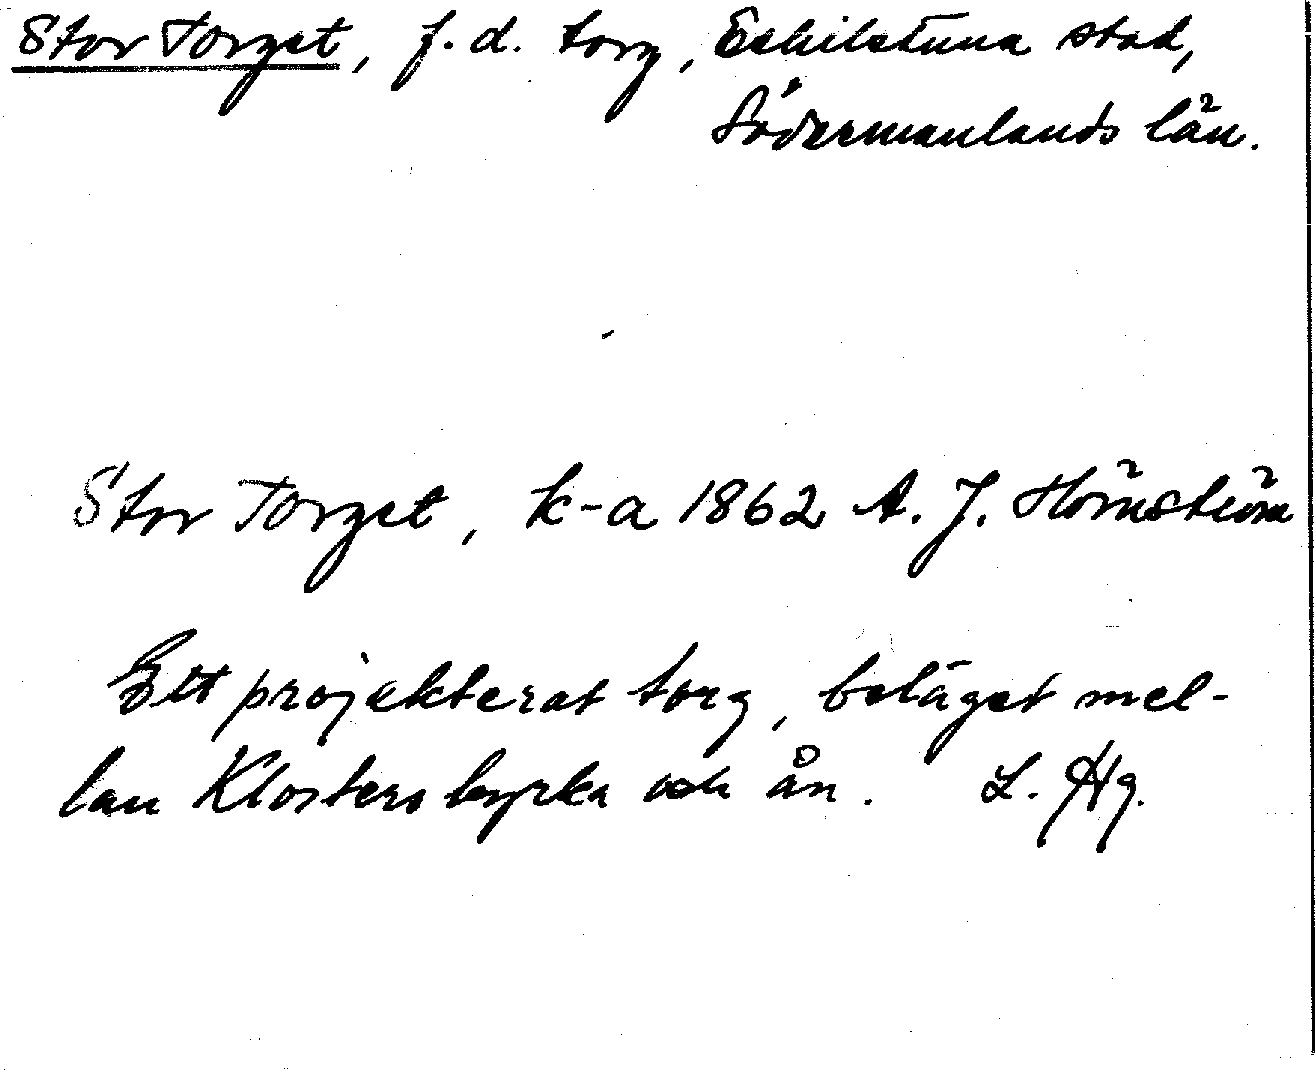 Stor Torget, f. d. torg, Eskilstuna stad,
Södermanlands län.
Stor Torget, k-a 1862 A. J. Hörnström
Ett projekterat torg, beläget mel-
lan Klosters kyrka och ån. L. Hg.